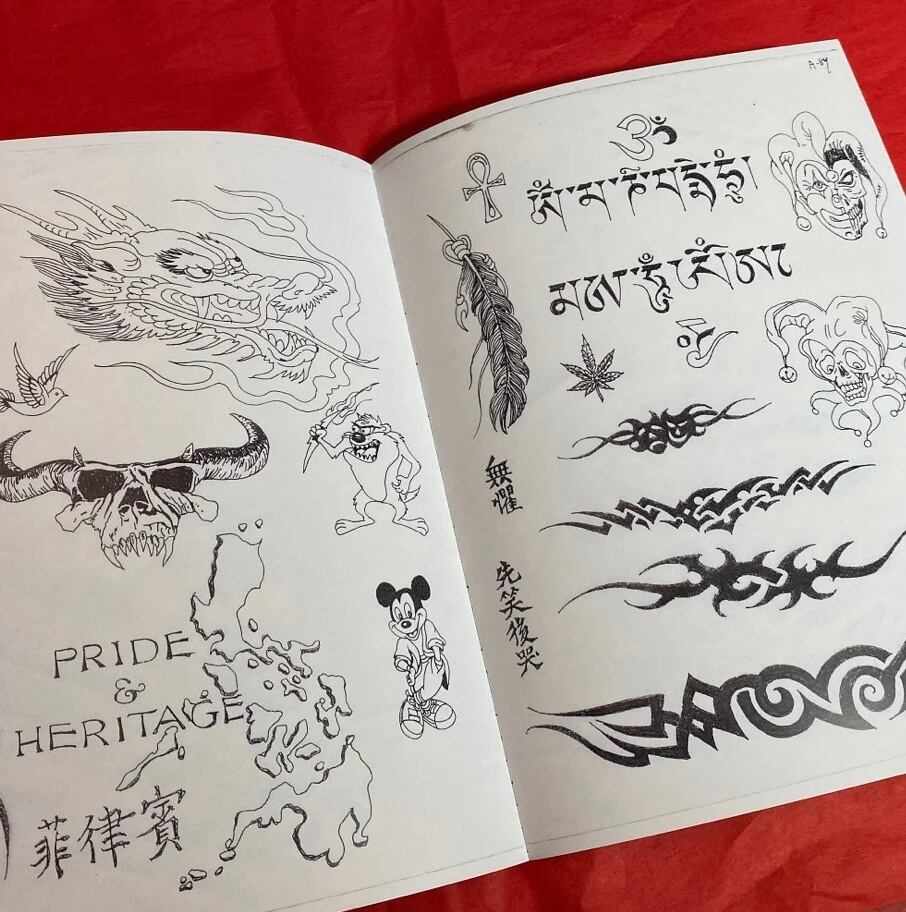 PRIDE
&
HERITAGE
菲律賓
ॐ
ཨོཾ་མ་ཎི་པདྨེ་ཧཱུྃ།
無懼
先笑後哭